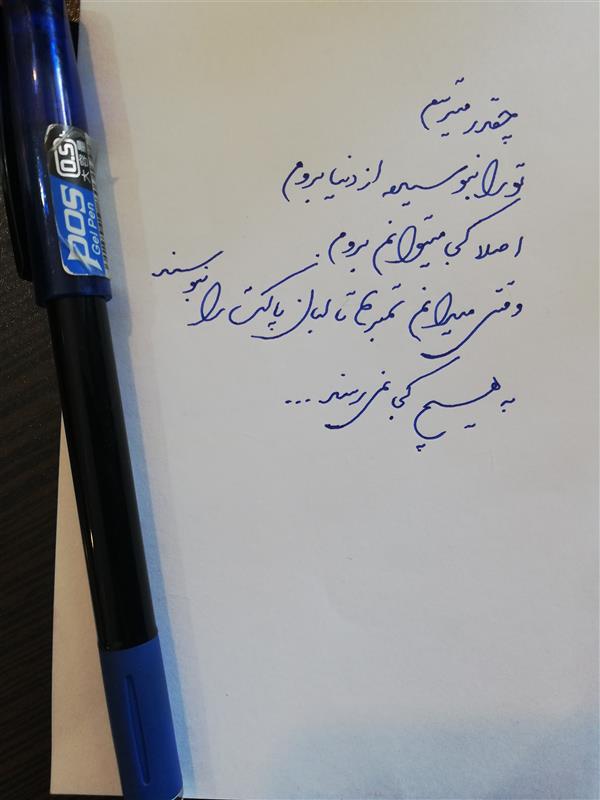 چقدر میترسم
تو را نبوسیده از دنیا بروم
اصلا کجا میتوانم بروم
وقتی میدانم تمبرها تا لبان پاکت را نبوسند
به هیچ کجا نمی‌رسند ...
POS
Gel Pen
0.5